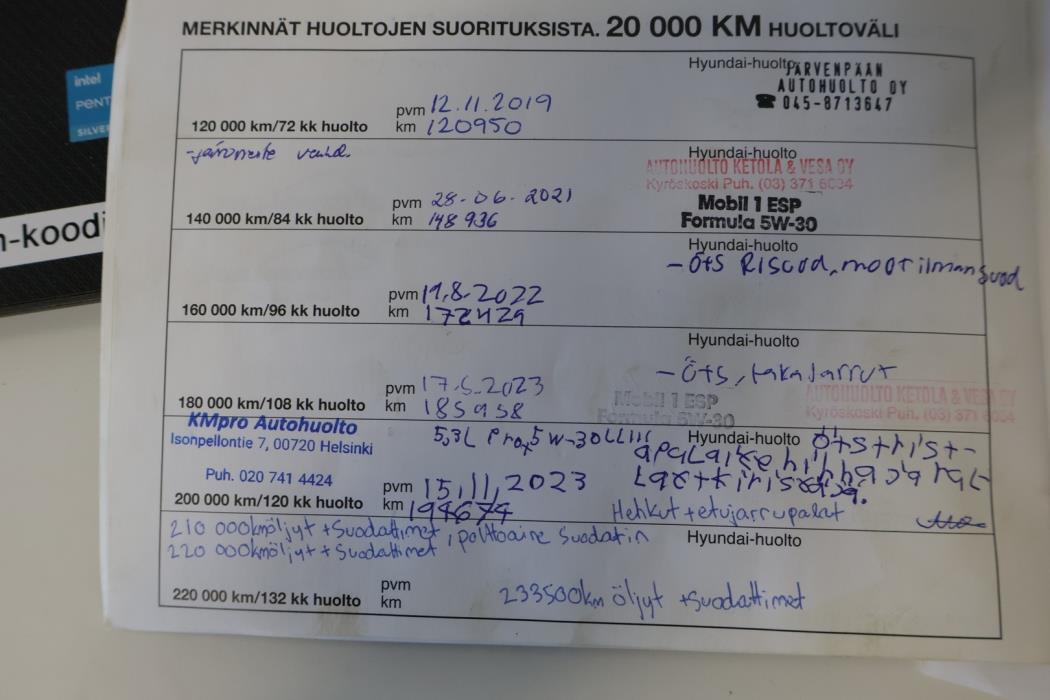 intel
PENT
SILVE
n-koodi
MERKINNÄT HUOLTOJEN SUORITUKSISTA. 20 000 KM HUOLTOVÄLI
Hyundai-huolto
JÄRVENPÄÄN
AUTOHUOLTO OY
☎ 045-8713647
pvm 12.11.2019
120 000 km/72 kk huolto km 120950
-jarruneste vaihd.
Hyundai-huolto
AUTOHUOLTO KETOLA & VESA OY
Kyröskoski Puh. (03) 371 6034
Mobil 1 ESP
Formula 5W-30
pvm 28.06.2021
140 000 km/84 kk huolto km 148936
Hyundai-huolto
- Öts, moot ilmansuod
pvm 11.8.2022
160 000 km/96 kk huolto km 172429
Hyundai-huolto
- Öts, takajarrut
pvm 17.5.2023
180 000 km/108 kk huolto km 185958
Mobil 1 ESP
Formula 5W-30
AUTOHUOLTO KETOLA & VESA
Kyröskoski Puh. (03) 371 6034
KMpro Autohuolto
Isonpellontie 7, 00720 Helsinki
Puh. 020 741 4424
5,3L 5W-30
Hyundai-huolto
pvm 15.11.2023
200 000 km/120 kk huolto km 194674
Hehkut + etujarrupalat
210 000km öljyt + Suodattimet, polttoaine Suodatin
220 000km öljyt + Suodattimet
Hyundai-huolto
pvm
220 000 km/132 kk huolto km
233500km öljyt + Suodattimet